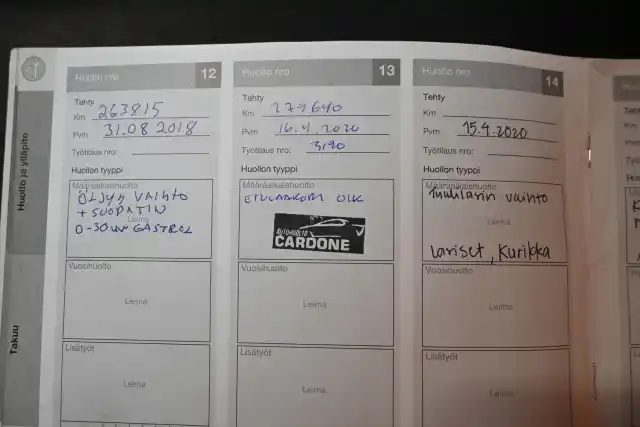 Huolto ja ylläpito
Takuu
Huolto nro 12
Tehty
Km 263815
Pvm 31.08 2018
Työtilaus nro:
Huollon tyyppi
Määräaikaishuolto
ÖLJYN VAIHTO
+ SUODATIN
Leima
0-30W CASTROL
Vuosihuolto
Leima
Lisätyöt
Leima
Huolto nro 13
Tehty
Km 271640
Pvm 16.4.2020
Työtilaus nro: 3190
Huollon tyyppi
Määräaikaishuolto
AUTOHUOLTO
CARDONE
Vuosihuolto
Leima
Lisätyöt
Leima
Huolto nro 14
Tehty
Km
Pvm 15.4.2020
Työtilaus nro:
Huollon tyyppi
Määräaikaishuolto
Tuulilasin vaihto
Leima
Lariset, Kurikka
Vuosihuolto
Leima
Lisätyöt
Leima